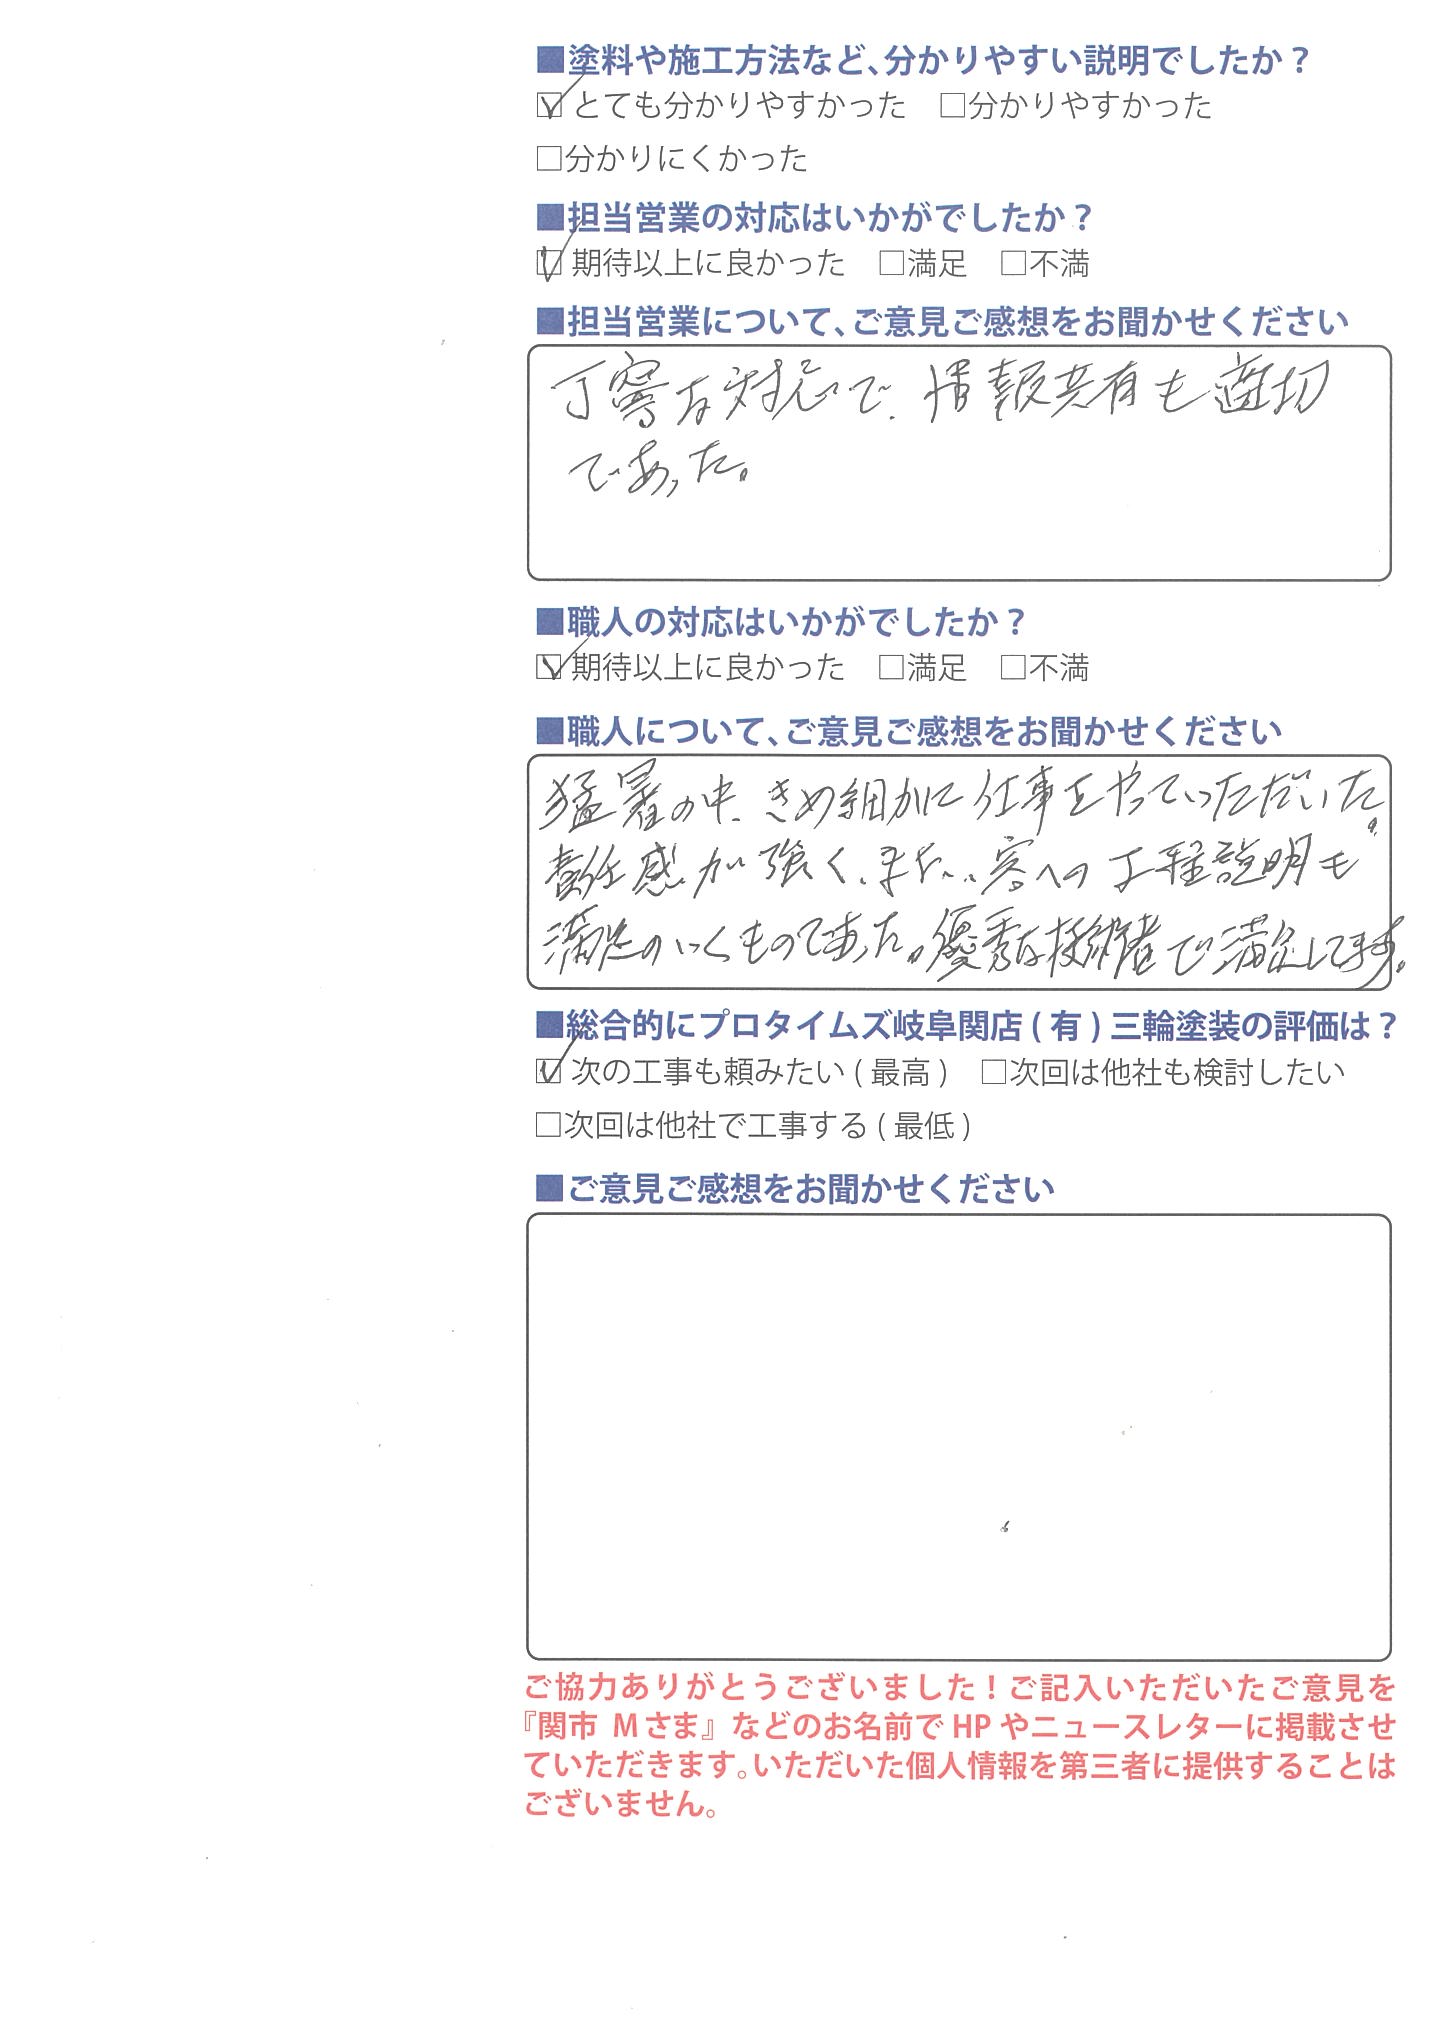 ■塗料や施工方法など、分かりやすい説明でしたか？
☑とても分かりやすかった　□分かりやすかった
□分かりにくかった
■担当営業の対応はいかがでしたか？
☑期待以上に良かった　□満足　□不満
■担当営業について、ご意見ご感想をお聞かせください
丁寧な対応で、情報共有も適切
であった。
■職人の対応はいかがでしたか？
☑期待以上に良かった　□満足　□不満
■職人について、ご意見ご感想をお聞かせください
猛暑の中、きめ細かに仕事をやっていただいた。
責任感が強く、また、客への工程説明も
満足のいくものであった。優秀な技術者で満足してます。
■総合的にプロタイムズ岐阜関店(有)三輪塗装の評価は？
☑次の工事も頼みたい(最高)　□次回は他社も検討したい
□次回は他社で工事する(最低)
■ご意見ご感想をお聞かせください
ご協力ありがとうございました！ご記入いただいたご意見を
『関市 Mさま』などのお名前でHPやニュースレターに掲載させ
ていただきます。いただいた個人情報を第三者に提供することは
ございません。